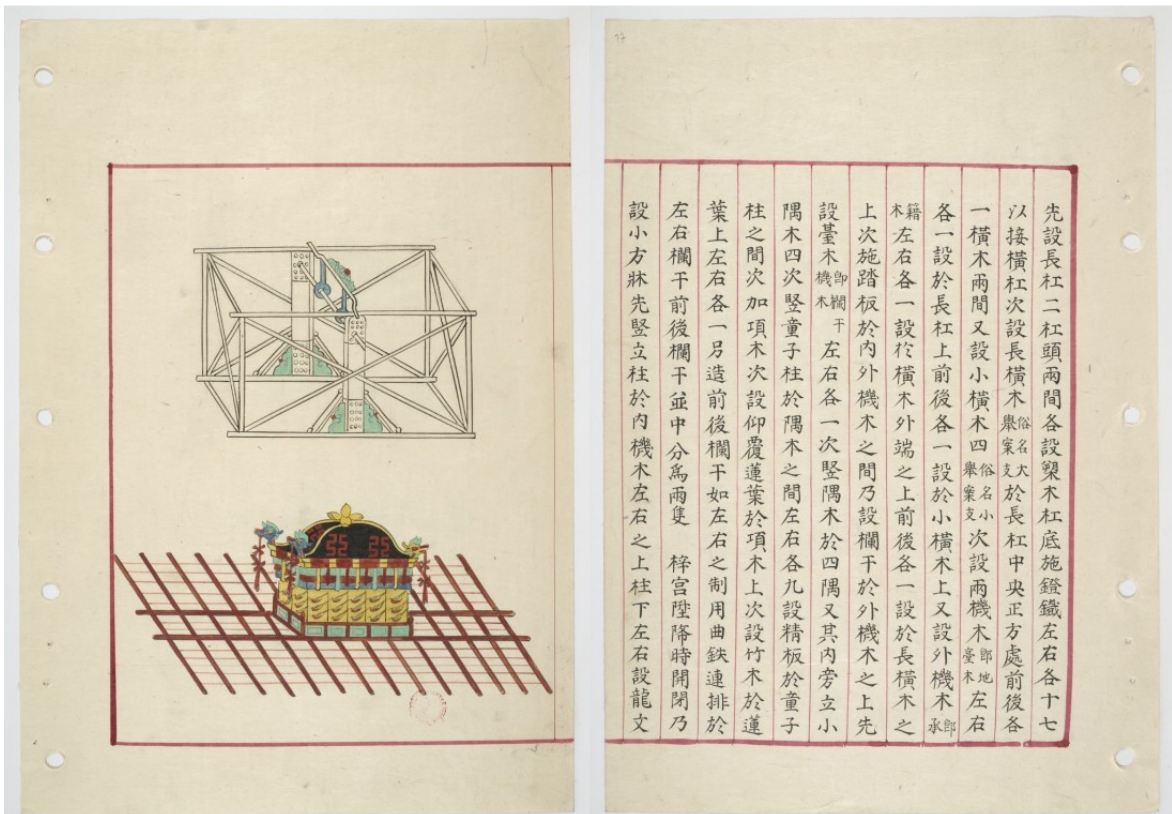 17
先設長杠二杠頭兩間各設槊木杠底施鐙鐵左右各十七
以接橫杠次設長橫木俗名大擧案支於長杠中央正方處前後各
一橫木兩間又設小橫木四俗名小擧案支次設兩機木卽地臺木左右
各一設於長杠上前後各一設於小橫木上又設外機木卽承
籍木左右各一設於橫木外端之上前後各一設於長橫木之
上次施踏板於內外機木之間乃設欄干於外機木之上先
設臺木卽欄干機木左右各一次竪隅木於四隅又其內旁立小
隅木四次竪童子柱於隅木之間左右各九設精板於童子
柱之間次加項木次設仰覆蓮葉於項木上次設竹木於蓮
葉上左右各一另造前後欄干如左右之制用曲鉄連排於
左右欄干前後欄干並中分爲兩隻 梓宮陞降時開閉乃
設小方牀先竪立柱於內機木左右之上柱下左右設龍文